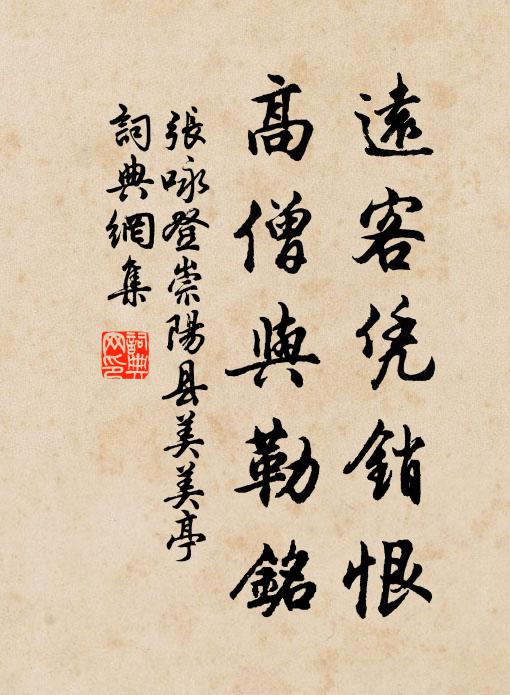 遠客凭銷恨
高僧與勒銘
張咏登崇陽县美美亭
詞典網集
詞典
网印